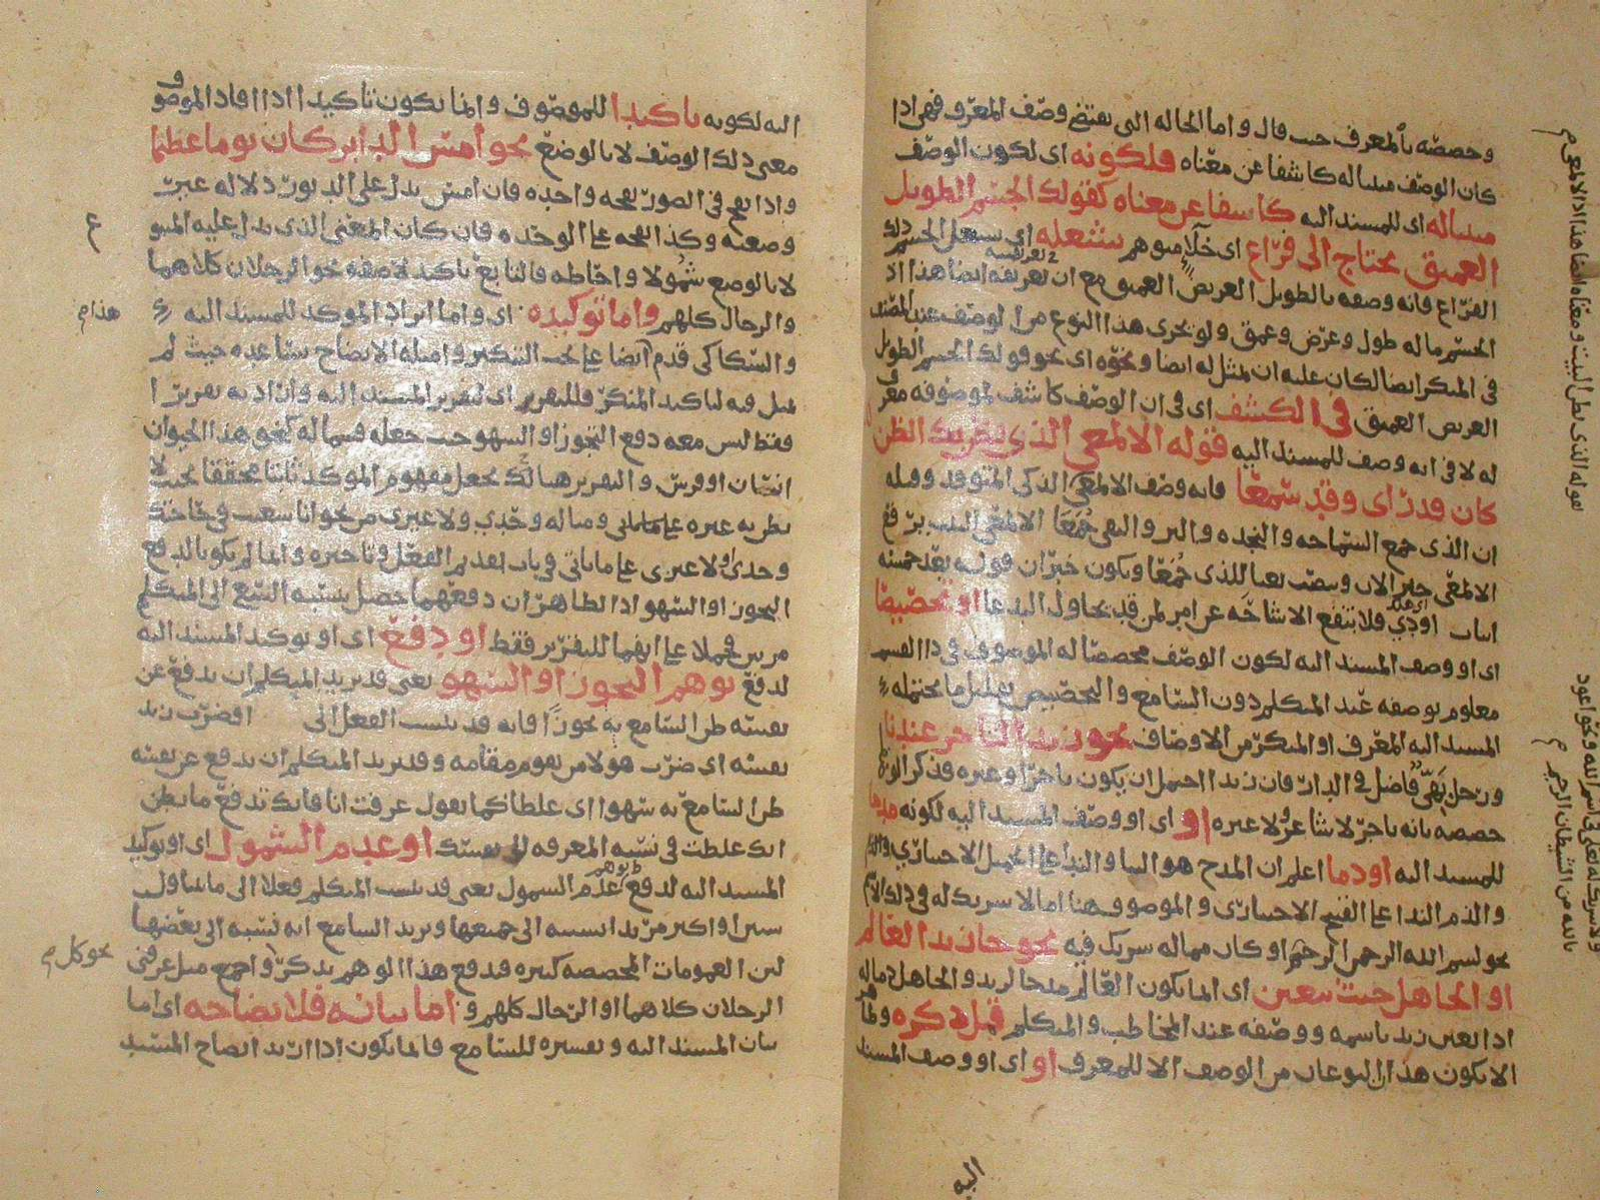 وخصصه بالمعرف حيث قال واما الحالة التى يقتضى وصف المعرف فهى اذا
كان الوصف مبينا له كاشفا عن معناه فلكونه اى لكون الوصف
مبينا له اى للمسند اليه كاشفا عن معناه كقولك الجسم الطويل
العميق يحتاج الى فراغ اى خلاء يشغله اى يشغل الجسم ذلك
الفراغ فانه وصفه بالطويل العريض العميق مع ان تعريفه ايضا هذا اذ
الجسم ما له طول وعرض وعمق ولو جرى هذا النوع من الوصف عند المصنف
فى المنكر ايضا لكان عليه ان يمثل له ايضا ونحوه اى نحو قولك الجسم الطويل
العريض العميق فى الكشف اى فى ان الوصف كاشف لموصوفه
له لا فى انه وصف للمسند اليه قوله الالمعى الذى يظن بك الظن
كان قد راى وقد سمعا فانه وصف الالمعى الذكى المتوقد وقبله
ان الذى جمع السماحه والنجده والبر والتقى جمعا الالمعى البيت برفع
الالمعى خبر الان وينصب نعتا للذى جمعا ويكون خبر ان قوله بعد خمسه
ابيات اودى فلا تنفع الاشاحه عن امر لمن قد يحاول البدعا او تخصيصا
اى او وصف المسند اليه لكون الوصف مخصصا له الموصوف فى ذا القسم
معلوم بوصفه عند المتكلم دون السامع والتخصيص تقليل ما يحتمله
المسند اليه المعرف او المنكر من الاوصاف نحو زيد التاجر عندنا
ورجل فاضل فى الدار فان زيدا احتمل ان يكون تاجرا وغيره فذكر
خصصه بانه تاجر لا شاعر ولا غيره او اى او وصف المسند اليه لكونه مدحا
للمسند اليه او ذما اعلم ان المدح هو الثنا والندا على الجميل الاختيارى
والذم الندا على القبيح الاختيارى والموصوف هنا اما لا شريك له فى ذلك الاسم
نحو بسم الله الرحمن الرحيم او كان مما له شريك فيه نحو جا زيد العالم
او الجاهل حيث تعين اى انما يكون العالم مدحا لزيد والجاهل ذما له
اذا تعين زيد باسمه ووصفه عند المخاطب والمتكلم قبل ذكره
الا يكون هذا النوعان من الوصف الا للمعرف او اى او وصف المسند
اليه
قوله الذى يظن البيت ومعناه ايضا هذا اذ الالمعى
ولا شريك له تعالى فى اسم الله ونحو اعوذ
بالله من الشيطان الرجيم
اليه لكونه تاكيدا للموصوف وانما يكون تاكيدا اذا افاد الموصوف
معنى ذلك الوصف لا بالوضع نحو امس الدابر كان يوما عظيما
واذا نفخ فى الصور نفخة واحدة فان امس يدل على الدبور دلالة عين
وضعه وكذا نفخة على الوحده فان كان المعنى الذى يدل عليه المتبوع
لا بالوضع شمولا واحاطة فالتابع تاكيد لا صفه نحو الرجلان كلاهما
والرجال كلهم واما توكيده اى واما ايراد الموكد للمسند اليه
والسكاكى قدم ايضا على بحث التنكير وامثلة الايضاح تساعده حيث لم
يمثل فيه لتاكيد المنكر فللتقرير اى لتقرير المسند اليه وان اراد به تقريرا
فقط ليس معه دفع التجوز او السهو حيث جعله قسما له كنحو هذا الحيوان
انسان او فرس والتقرير هنا لك يجعل مفهوم الموكد ثابتا محققا بحيث لا
يظن به غيره على ما ياتى ومثاله وحدى ولا غيرى من نحو انا سعيت فى حاجتك
وحدى او لا غيرى على ما ياتى فى باب تقديم الفعل وتاخيره وانما لم يكن بالدفع
التجوز او السهو اذ الظاهر ان دفعهما حصل بنسبة السعى الى المتكلم
مرتين فحملا على انهما للتقرير فقط او دفع اى او توكيد المسند اليه
لدفع توهم التجوز او السهو يعنى قد يريد المتكلم ان يدفع عن
نفسه ظن السامع به تجوزا فانه قد ينسب الفعل الى او ضرب زيد
نفسه اى ضرب هو لا من يقوم مقامه وقد يريد المتكلم ان يدفع عن نفسه
ظن السامع به سهوا اى غلطا كما يقول عرفت انا فانك تدفع ما يظن
انك غلطت فى نسبة المعرفة الى نفسك او عدم الشمول اى او توكيد
المسند اليه لدفع توهم عدم الشمول يعنى قد ينسب المتكلم فعلا الى ما يتناول
شيئا واكثر مريدا نسبته الى جميعها ويريد السامع انه نسبه الى بعضها
لان العمومات المخصصه كثيره فدفع هذا الوهم بذكر واجمع مثل عرفنى
الرجلان كلاهما او الرجال كلهم و اما بيانه فلايضاحه اى اما
بيان المسند اليه وتفسيره للسامع فانما يكون اذا اريد ايضاح المسند
ع
هذا م
نحو كل م